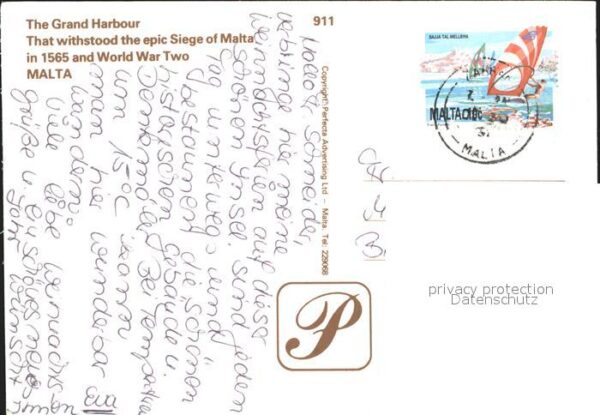 The Grand Harbour
That withstood the epic Siege of Malta
in 1565 and World War Two
MALTA
911
BAJJA TAL-MELLIEHA
MALTA 10c
MALTA
Copyright: Perfecta Advertising Ltd - Malta. Tel. 229068
P
privacy protection
Datenschutz
Hallo Schneider,
verbringe hier meine
Weihnachtsferien auf dieser
schönen Insel. Sind jeden
Tag unterwegs und
bestaunen die schönen
historischen Gebäude u.
Denkmäler. Bei Temperatur
um 15°C kann
man hier wunderbar
wandern.
Viele liebe Weihnachts
grüße u. ein schönes neues
Jahr wünscht